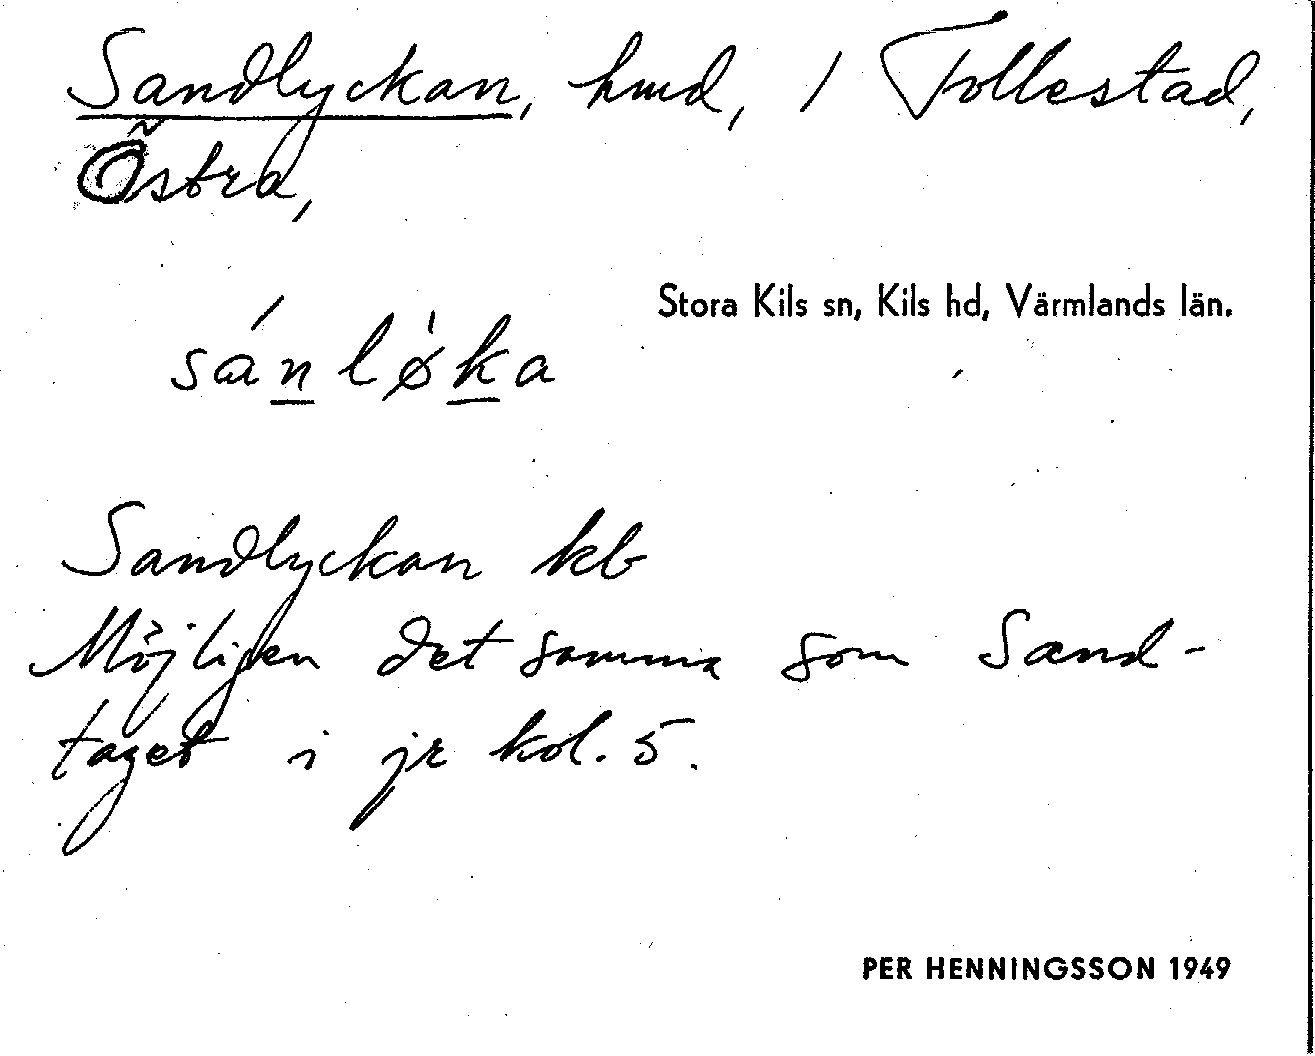 Sandlyckan, hmd, / Tollestad,
Östra,
Stora Kils sn, Kils hd, Värmlands län.
sánlø̀ka
Sandlyckan kb
Möjligen det samma som Sand-
taget i jr kol. 5.
PER HENNINGSSON 1949